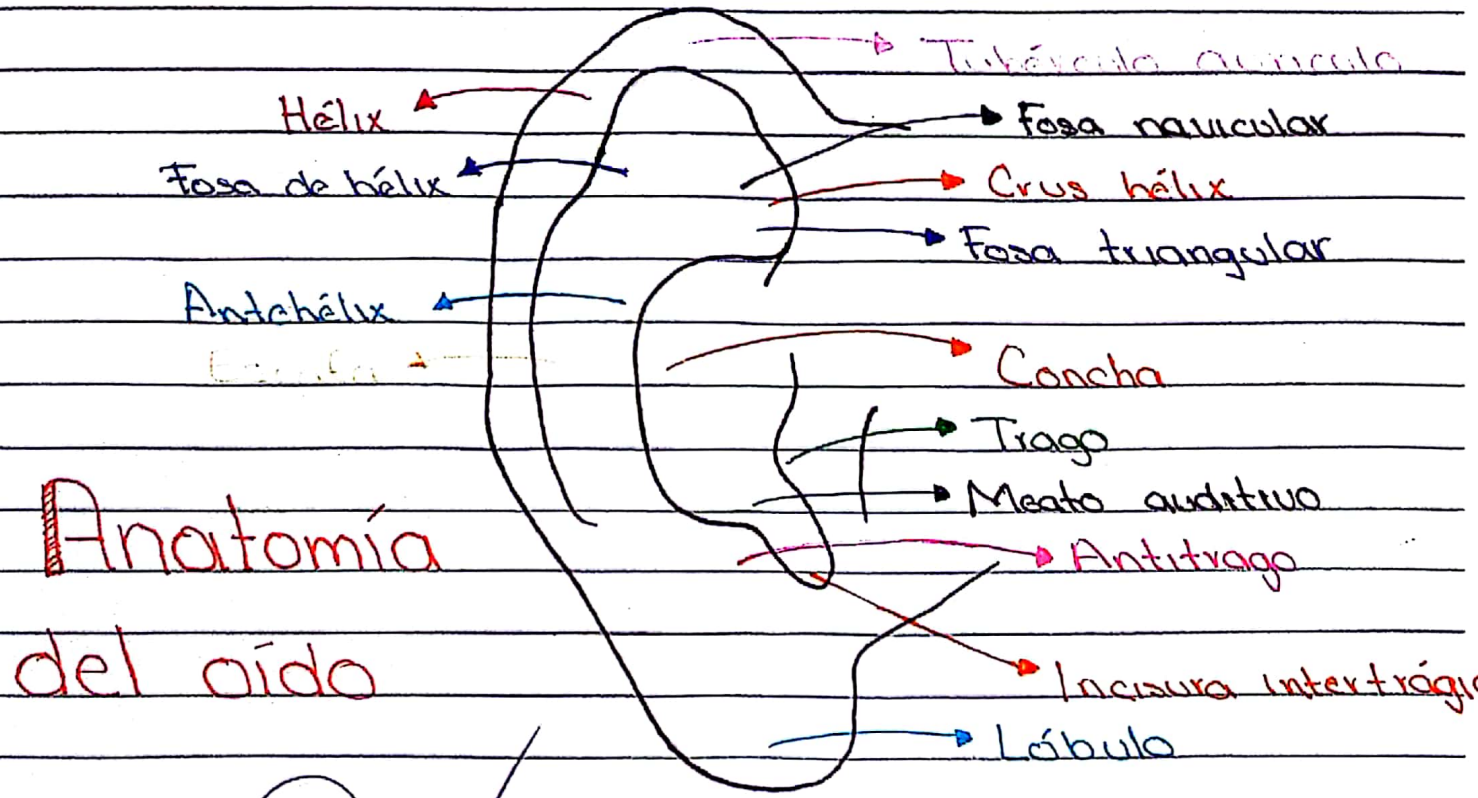 Tubérculo auricula
Hélix
Fosa navicular
Fosa de hélix
Crus hélix
Fosa triangular
Antehélix
Concha
Trago
Meato auditivo
Antitrago
Anatomía
del oído
Incisura intertrági
Lóbulo